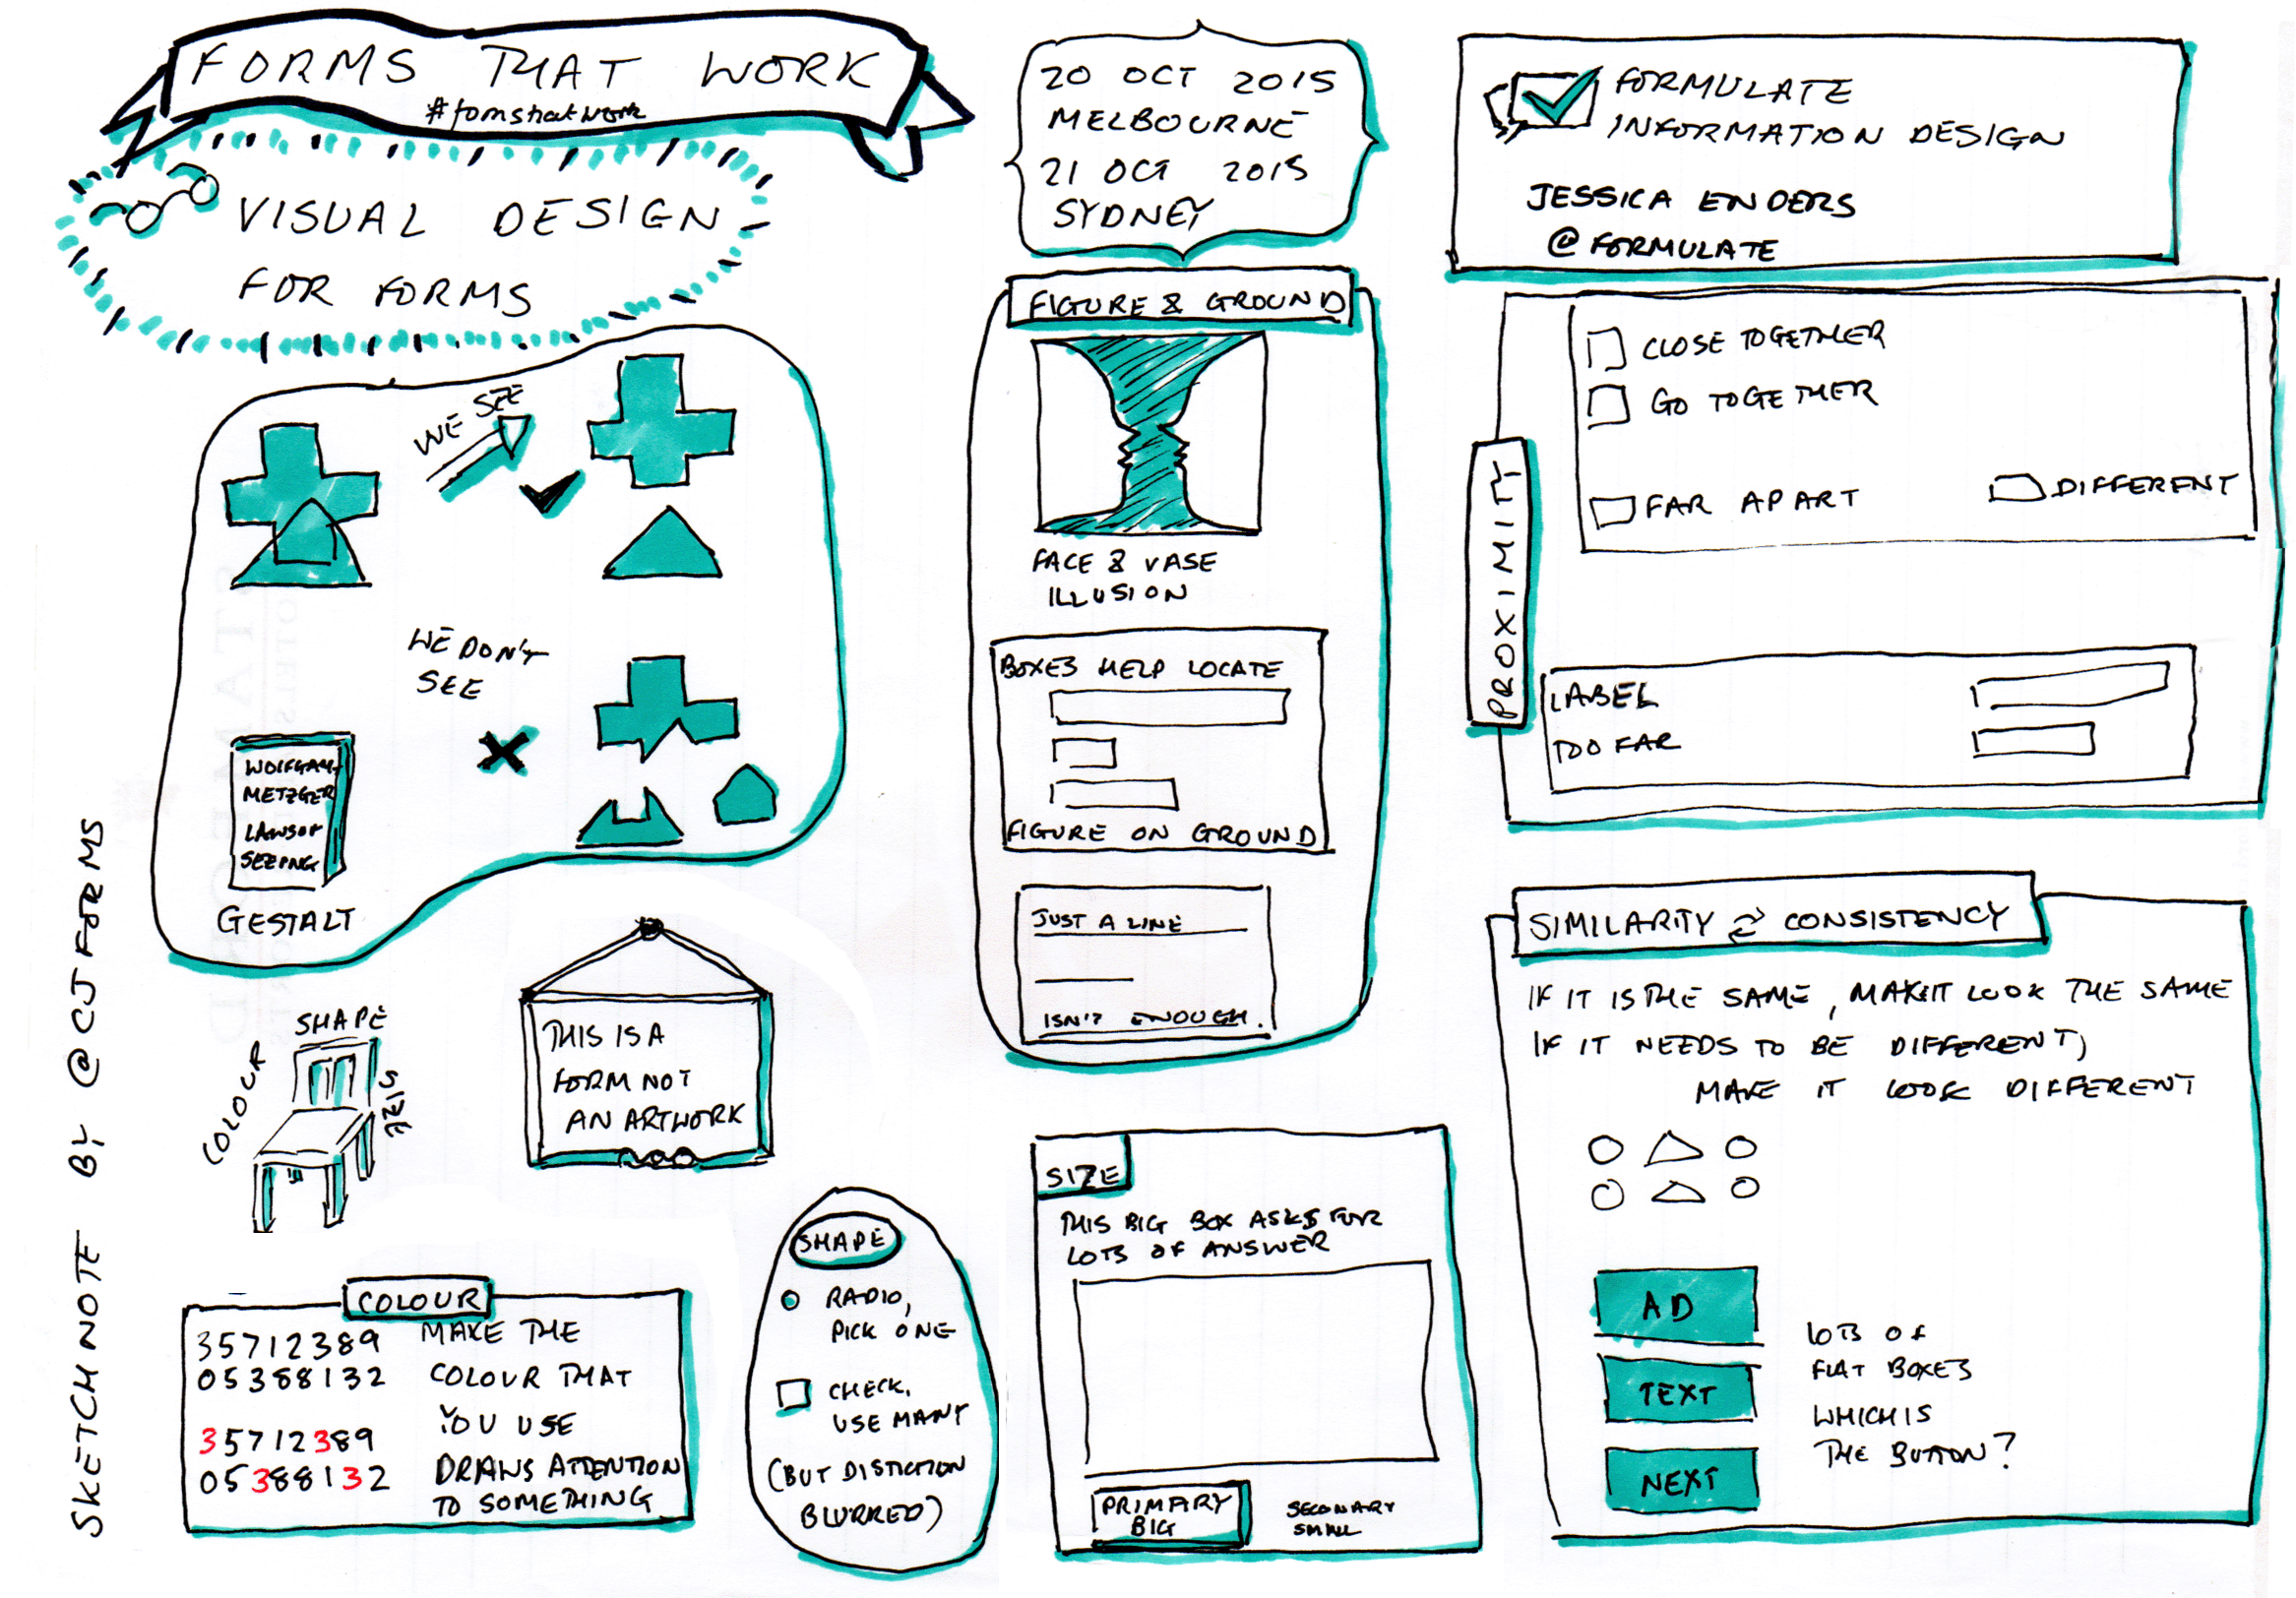 FORMS THAT WORK
#formsthatwork
VISUAL DESIGN
FOR FORMS
20 OCT 2015
MELBOURNE
21 OCT 2015
SYDNEY
FORMULATE
INFORMATION DESIGN
JESSICA ENDERS
@FORMULATE
WE SEE
WE DON'T
SEE
WOLFGANG
METZGER
LAWS OF
SEEING
GESTALT
FIGURE & GROUND
FACE & VASE
ILLUSION
BOXES HELP LOCATE
FIGURE ON GROUND
JUST A LINE
ISN'T ENOUGH.
PROXIMITY
CLOSE TOGETHER
GO TOGETHER
FAR APART
DIFFERENT
LABEL
TOO FAR
SIMILARITY CONSISTENCY
IF IT IS THE SAME, MAKE IT LOOK THE SAME
IF IT NEEDS TO BE DIFFERENT,
MAKE IT LOOK DIFFERENT
AD
TEXT
NEXT
LOTS OF
FLAT BOXES
WHICH IS
THE BUTTON?
SHAPE
COLOUR
SIZE
THIS IS A
FORM NOT
AN ARTWORK
COLOUR
35712389
05388132
35712389
05388132
MAKE THE
COLOUR THAT
YOU USE
DRAWS ATTENTION
TO SOMETHING
SHAPE
RADIO,
PICK ONE
CHECK,
USE MANY
(BUT DISTICTION
BLURRED)
SIZE
THIS BIG BOX ASKS FOR
LOTS OF ANSWER
PRIMARY
BIG
SECONARY
SMALL
SKETCHNOTE BY @CJFORMS